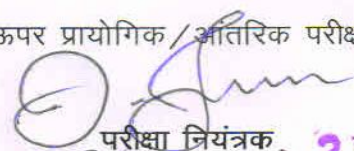 ऊपर प्रायोगिक/आंतरिक परीक्ष
परीक्षा नियंत्रक